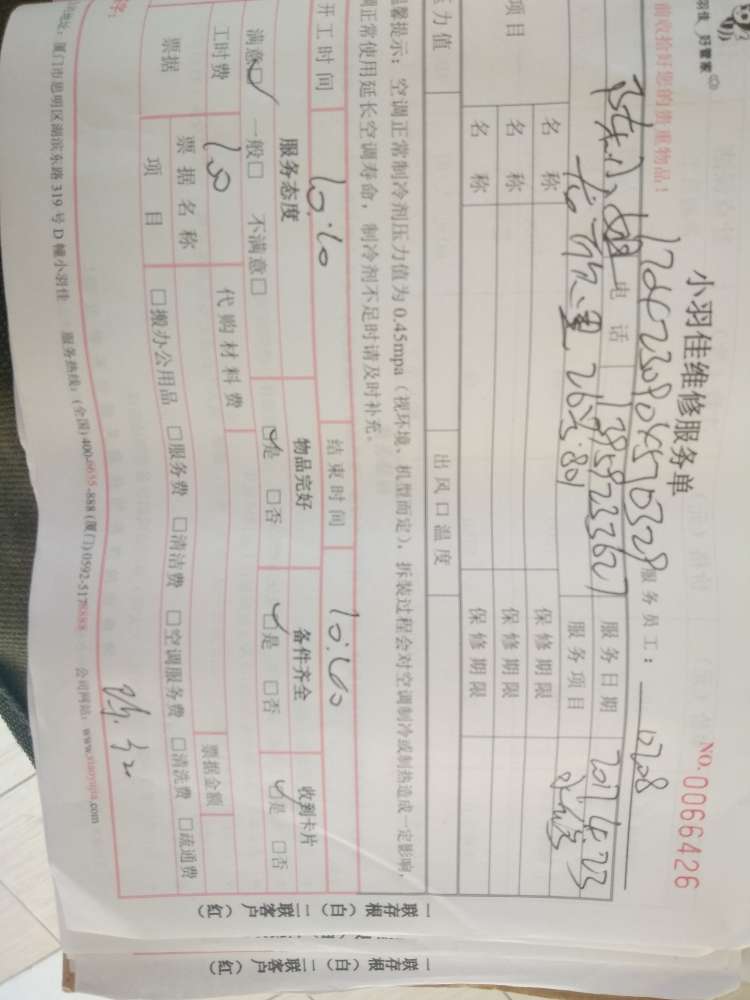 羽佳 好管家
前收拾好您的贵重物品！
小羽佳维修服务单
NO. 0066426
服务员工：
电话 13959233627 服务日期 2017.4.23
263-801 服务项目
项目 名称 保修期限
名称 保修期限
名称 保修期限
压力值 出风口温度
温馨提示：空调正常制冷剂压力值为0.45mpa（视环境、机型而定），拆装过程会对空调制冷或制热造成一定影响，
正常使用延长空调寿命，制冷剂不足时请及时补充。
开工时间 结束时间
服务态度 物品完好 备件齐全 收到卡片
满意□ 一般□ 不满意□ □是 □否 □是 □否 □是 □否
工时费 代购材料费
票据 票据名称 票据金额
项目 □搬办公用品 □服务费 □清洁费 □空调服务费 □清洗费 □疏通费
字：
地址：厦门市思明区湖滨东路319号D幢小羽佳 服务热线：(全国)400-6635-888 (厦门)0592-5178888 公司网站：www.xiaoyujia.com
一联存根（白） 二联客户（红）
一联存根（白） 二联客户（红）